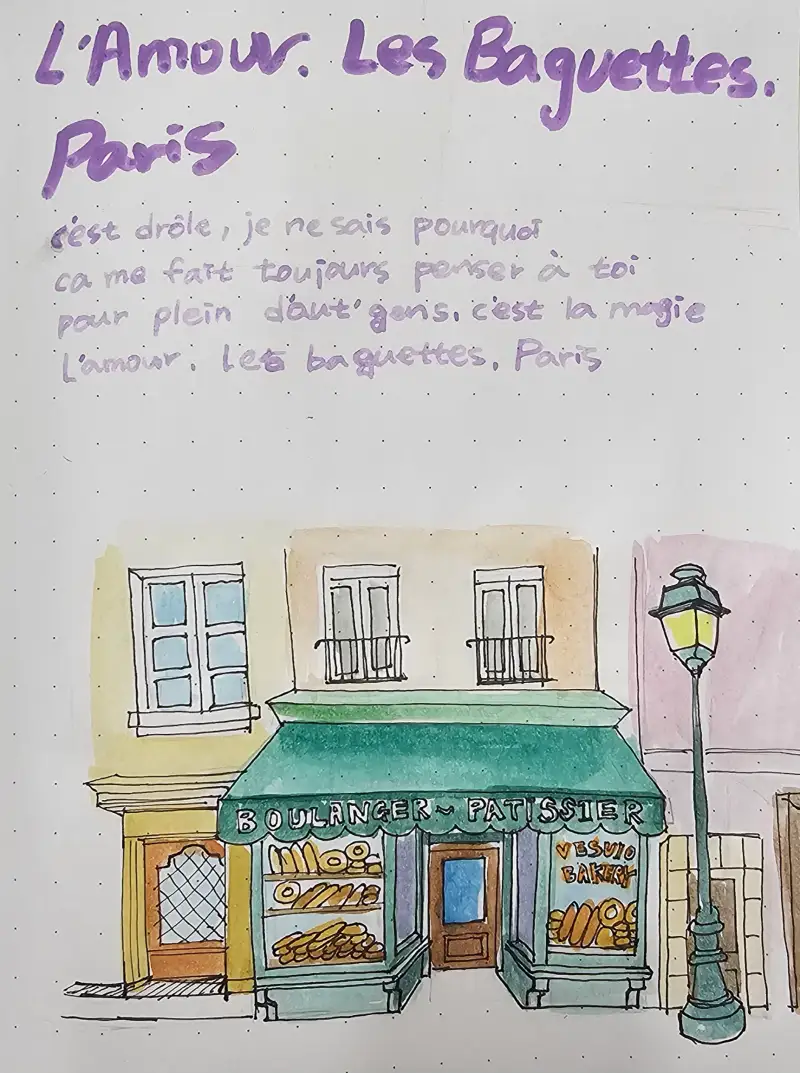 L'Amour. Les Baguettes.
Paris
c'est drôle, je ne sais pourquoi
ca me fait toujours penser à toi
pour plein d'aut' gens. c'est la magie
L'amour. Les baguettes. Paris
BOULANGER~ PATISSIER
VESUIO
BAKERY